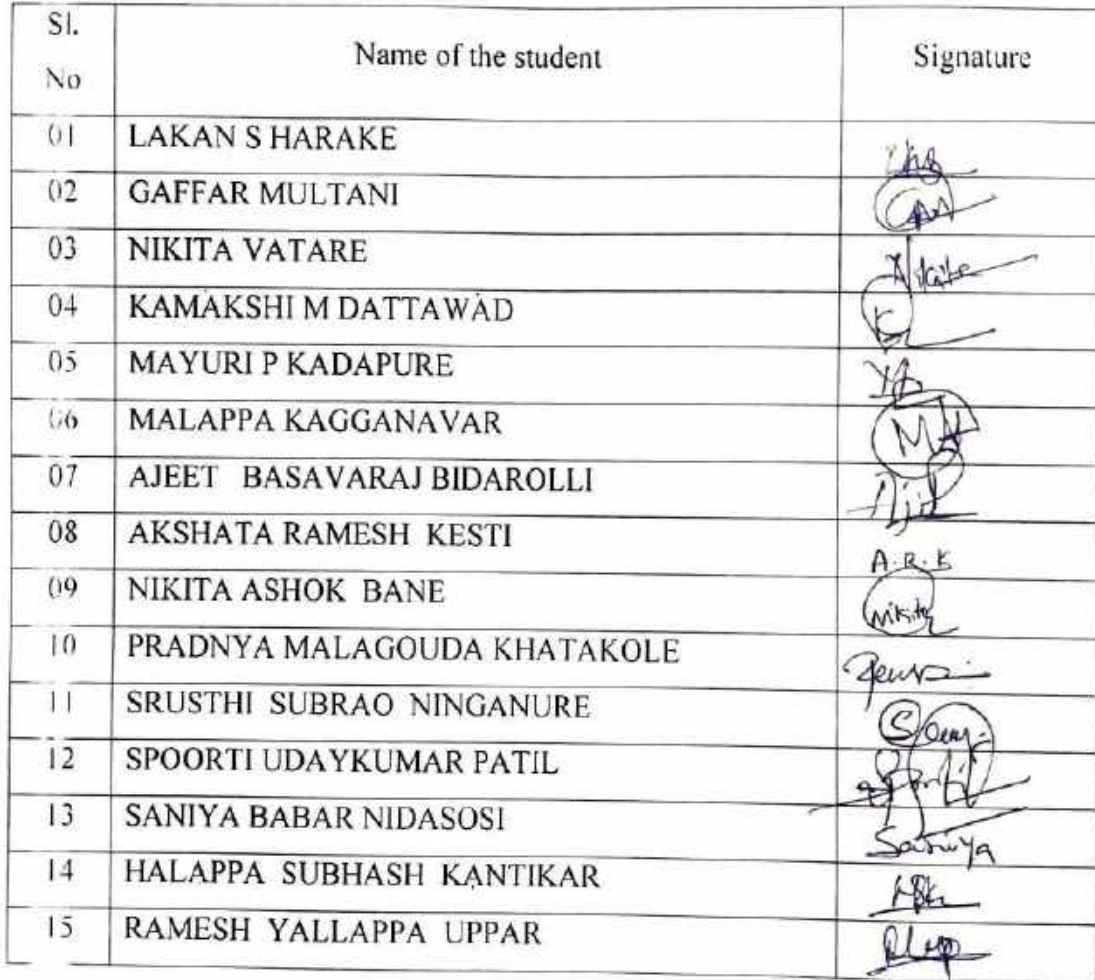 Sl. No Name of the student Signature
01 LAKAN S HARAKE
02 GAFFAR MULTANI
03 NIKITA VATARE Nikita
04 KAMAKSHI M DATTAWAD
05 MAYURI P KADAPURE
06 MALAPPA KAGGANAVAR
07 AJEET BASAVARAJ BIDAROLLI
08 AKSHATA RAMESH KESTI A.R.K
09 NIKITA ASHOK BANE Nikita
10 PRADNYA MALAGOUDA KHATAKOLE
11 SRUSTHI SUBRAO NINGANURE
12 SPOORTI UDAYKUMAR PATIL
13 SANIYA BABAR NIDASOSI Saniya
14 HALAPPA SUBHASH KANTIKAR
15 RAMESH YALLAPPA UPPAR